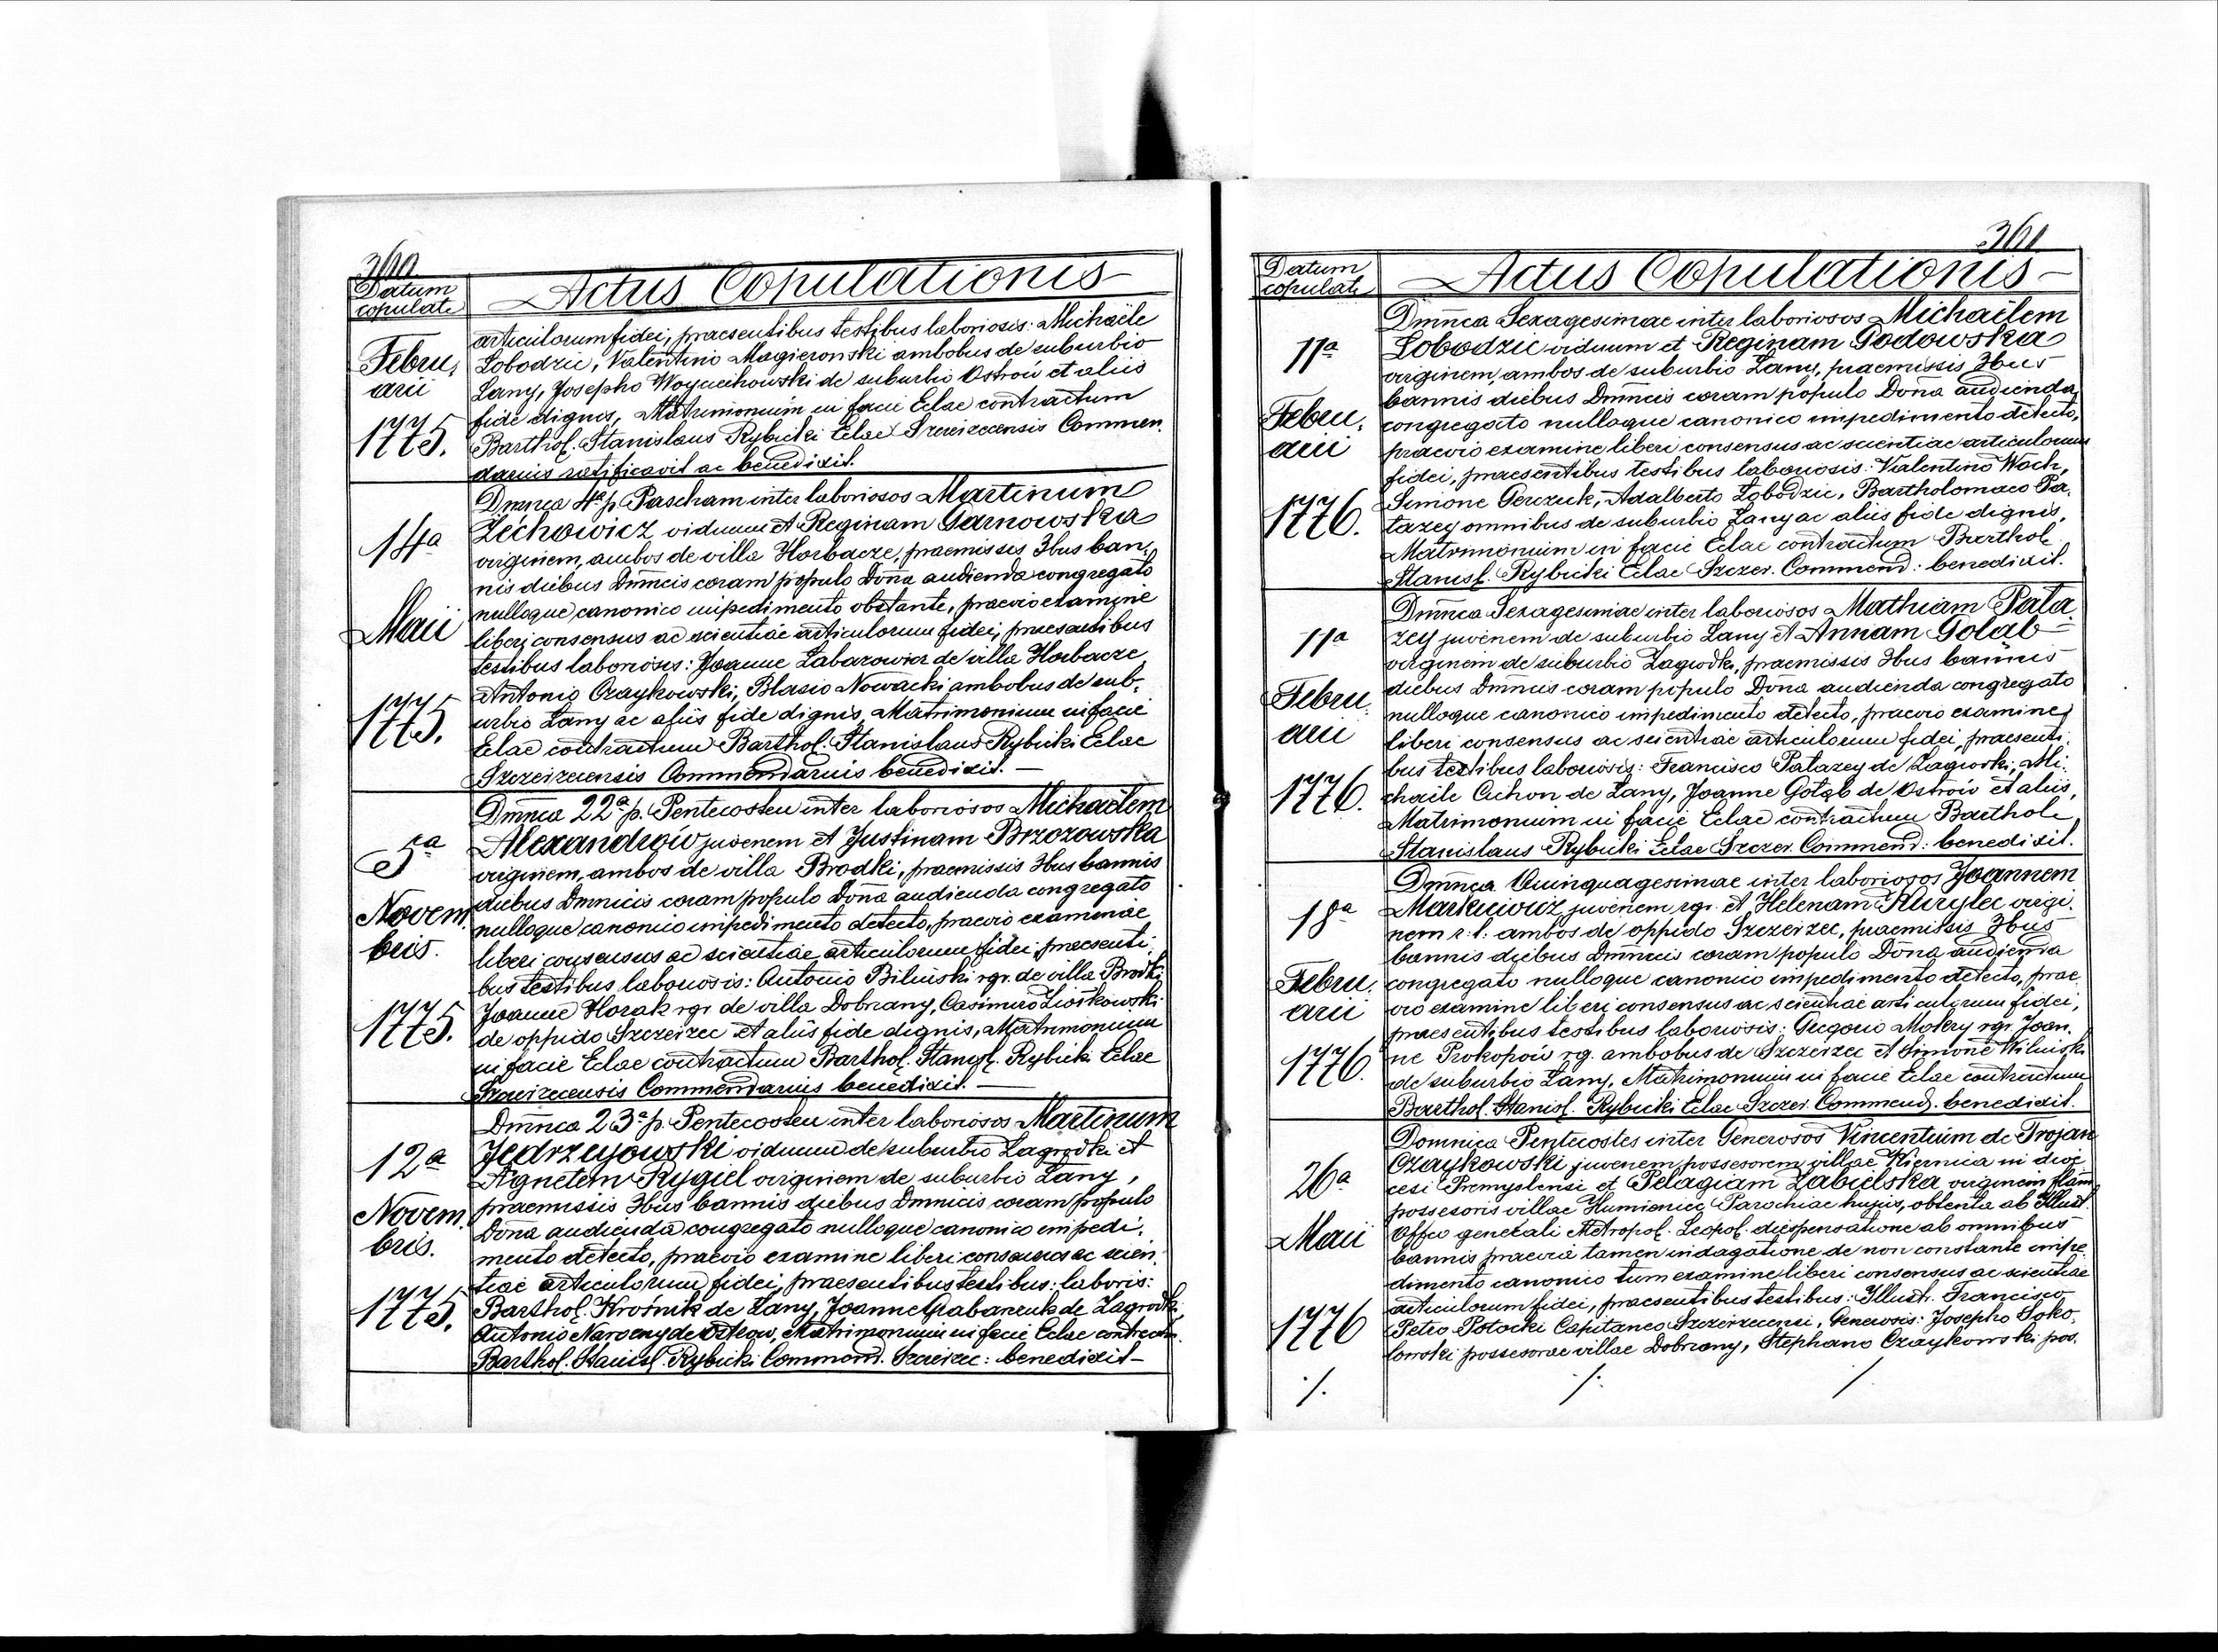 360
Datum
copulate
Actus Copulationis
Febru,
arii
1775.
articulorum fidei, praesentibus testibus laboriosis: Michaële
Lobodzic, Valentino Magieronski ambobus de suburbio
Lany, Josepho Woyciechowski de suburbio Ostrow et aliis
fide dignis, Matrimonium in facie Eclae contractum
Barthol. Stanislaus Rybicki Eclae Szczeizecensis Commen.
darius ratificavit ac benedixit.
14a
Maii
1775.
Dmnca 4a p. Pascham inter laboriosos Martinum
Zechowicz viduum et Reginam Garnowska
virginem, ambos de villa Horbacze, praemissis 3bus ban,
nis diebus Dmncis coram populo Dona audienda congregato
nulloque canonico impedimento obstante, praevio examine
liberi consensus ac scientiae articulorum fidei, praesentibus
testibus laboriosis: Joanne Zabarowicz de villa Horbacze
Antonio Czaykowski, Blasio Nowacki ambobus de sub,
urbio Lany ac aliis fide dignis, Matrimonium in facie
Eclae contractum Barthol. Stanislaus Rybicki Eclae
Szczeizecensis Commendarius benedixit. —
5ta
Novem.
bris.
1775.
Dmnca 22a p. Pentecosten inter laboriosos Michaëlem
Alexandrów juvenem et Justinam Brzozowska
virginem, ambos de villa Brodki, praemissis 3bus bannis
diebus Dmnicis coram populo Dona audienda congregato
nulloque canonico impedimento detecto, praevio examinae
liberi consensus ac scientiae articulorum fidei praesenti
bus testibus laboriosis: Antonio Bilinski rgr. de villa Brodki
Joanne Horak rgr de villa Dobrzany, Casimiro Ziotkowski
de oppido Szczeizec et aliis fide dignis, Matrimonium
in facie Eclae contractum Barthol. Stanisl. Rybicki Eclae
Szczeizecensis Commendarius benedixit. —
12a
Novem.
bris.
1775.
Dmnca 23a p. Pentecosten inter laboriosos Martinum
Jedrzejowski viduum de suburbio Zagrodki et
Agnetem Rygiel virginem de suburbio Lany,
praemissis 3bus bannis diebus Dmnicis coram populo
Dona audienda congregato nulloque canonico impedi,
mento detecto, praevio examine liberi consensus ac scien,
tiae articulorum fidei, praesentibus testibus: laboris:
Barthol. Krośnik de Lany, Joanne Grabarczuk de Zagrodki,
Antonio Naroczny de Ostrow, Matrimonium in facie Eclae contractum.
Barthol. Stanisl. Rybicki Commend. Szczeizec: benedixit —
361
Datum
copulate
Actus Copulationis
11a
Febru,
arii
1776.
Dmnca Sexagesimae inter laboriosos Michaëlem
Lobodzic viduum et Reginam Godowska
virginem, ambos de suburbio Lany, praemissis 3bus
bannis diebus Dmncis coram populo Dona audienda
congregato nulloque canonico impedimento detecto,
praevio examine liberi consensus ac scientiae articulorum
fidei, praesentibus testibus laboriosis: Valentino Woch,
Simone Gerczuk, Adalberto Lobodzic, Bartholomaeo Pa,
tazey omnibus de suburbio Lany ac aliis fide dignis,
Matrimonium in facie Eclae contractum Barthol.
Stanisl. Rybicki Eclae Szczez. Commend: benedixit.
11a
Febru,
arii
1776.
Dmnca Sexagesimae inter laboriosos Mathiam Pata
zey juvenem de suburbio Lany et Annam Goląb
virginem de suburbio Zagrodki, praemissis 3bus bannis
diebus Dmncis coram populo Dona audienda congregato
nulloque canonico impedimento detecto, praevio examine
liberi consensus ac scientiae articulorum fidei, praesenti,
bus testibus laboriosis: Francisco Patazey de Zagrodki, Mi,
chaele Cichon de Lany, Joanne Gołąb de Ostrów et aliis,
Matrimonium in facie Eclae contractum Barthol.
Stanislaus Rybicki Eclae Szczez. Commend: benedixit.
18a
Febru,
arii
1776.
Dmnca Quinquagesimae inter laboriosos Joannem
Markiewicz, juvenem rgr. et Helenam Kurylec virgi,
nem r: l: ambos de oppido Szczeizec, praemissis 3bus
bannis diebus Dmnicis coram populo Dona audienda
congregato nulloque canonico impedimento detecto, prae,
vio examine liberi consensus ac scientiae articulorum fidei,
praesentibus testibus laboriosis: Gregorio Mokry rgr. Joan,
ne Prokopow rg. ambobus de Szczeizec et Simone Wilniski
de suburbio Lany, Matrimonium in facie Eclae contractum
Barthol. Stanisl. Rybicki Eclae Szczez. Commend. benedixit.
26a
Maii
1776
Domnica Pentecostes inter Generosos Vincentium de Trojan
Czaykowski juvenem possesorem villae Kiernica in dioe
cesi Premyslensi et Pelagiam Zabielska virginem filiam
possesoris villae Humieniec Parochiae hujus, obtenta ab Illust.
Offco generali Metropol. Leopol. dispensatione ab omnibus
bannis praevia tamen indagatione de non constante impe,
dimento canonico tum examine liberi consensus ac scientiae
articulorum fidei, praesentibus testibus: Illustr. Francisco
Petro Potocki Capitaneo Szczeizecensi, Generosis: Josepho Soko,
lowski possesorae villae Dobrzany, Stephano Czaykowski pos.
./. ./. /